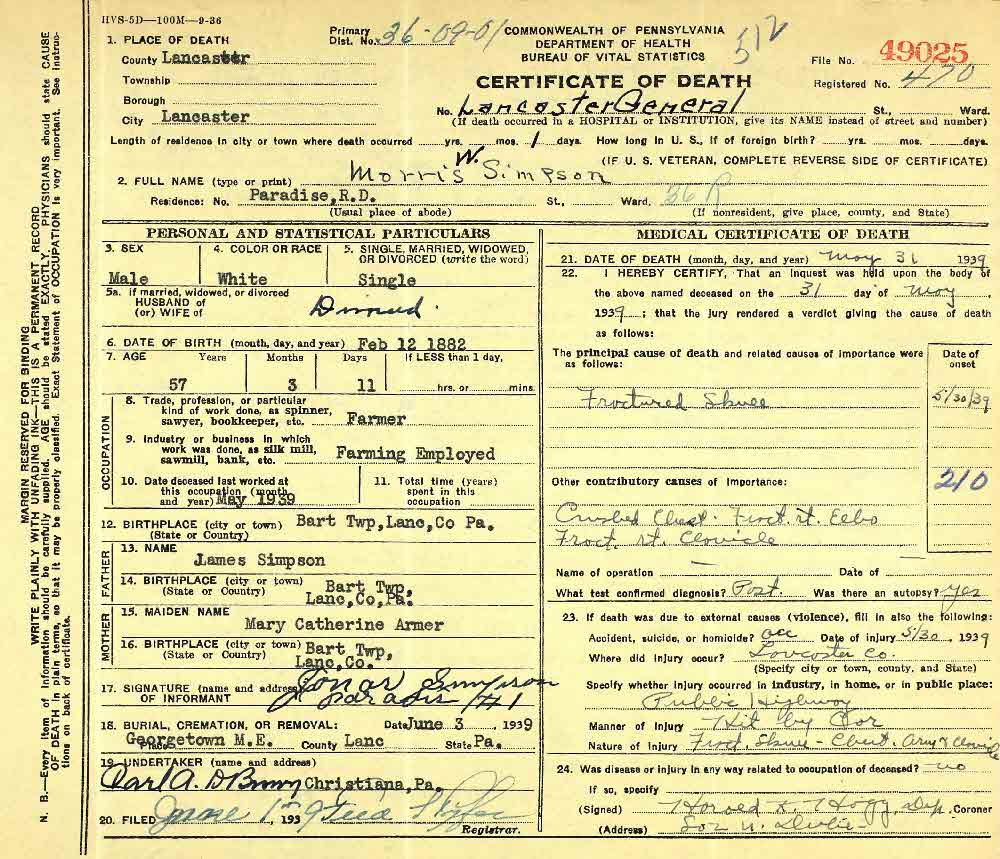 HVS-5D—100M—9-36
Primary Dist. No. 36-09-01
COMMONWEALTH OF PENNSYLVANIA
DEPARTMENT OF HEALTH
BUREAU OF VITAL STATISTICS
512
CERTIFICATE OF DEATH
File No. 49025
Registered No. 470
1. PLACE OF DEATH
County Lancaster
Township
Borough
City Lancaster
No. Lancaster General St., Ward.
(If death occurred in a HOSPITAL or INSTITUTION, give its NAME instead of street and number)
Length of residence in city or town where death occurred yrs. mos. 1 days. How long in U. S., if of foreign birth? yrs. mos. days.
(IF U. S. VETERAN, COMPLETE REVERSE SIDE OF CERTIFICATE)
2. FULL NAME (type or print) Morris W. Simpson
Residence: No. Paradise,R.D. St., Ward. 36 R
(Usual place of abode) (If nonresident, give place, county, and State)
PERSONAL AND STATISTICAL PARTICULARS
3. SEX
Male
4. COLOR OR RACE
White
5. SINGLE, MARRIED, WIDOWED,
OR DIVORCED (write the word)
Single
5a. If married, widowed, or divorced
HUSBAND of
(or) WIFE of
6. DATE OF BIRTH (month, day, and year) Feb 12 1882
7. AGE Years Months Days If LESS than 1 day,
57 3 11 hrs. or mins.
OCCUPATION
8. Trade, profession, or particular
kind of work done, as spinner,
sawyer, bookkeeper, etc. Farmer
9. Industry or business in which
work was done, as silk mill,
sawmill, bank, etc. Farming Employed
10. Date deceased last worked at
this occupation (month
and year) May 1939
11. Total time (years)
spent in this
occupation
12. BIRTHPLACE (city or town) Bart Twp,Lanc,Co Pa.
(State or Country)
FATHER
13. NAME
James Simpson
14. BIRTHPLACE (city or town) Bart Twp,
(State or Country) Lanc,Co,Pa.
MOTHER
15. MAIDEN NAME
Mary Catherine Armer
16. BIRTHPLACE (city or town) Bart Twp,
(State or Country) Lanc,Co.
17. SIGNATURE (name and address) Simpson
OF INFORMANT #1
18. BURIAL, CREMATION, OR REMOVAL: Date June 3 , 1939
Place Georgetown M.E. County Lanc State Pa.
19. UNDERTAKER (name and address)
Carl A. Christiana,Pa.
20. FILED June 1st, 1939
Registrar.
MEDICAL CERTIFICATE OF DEATH
21. DATE OF DEATH (month, day, and year) May 31 1939
22. I HEREBY CERTIFY, That an inquest was held upon the body of
the above named deceased on the 31 day of May,
1939; that the jury rendered a verdict giving the cause of death
as follows:
The principal cause of death and related causes of importance were
as follows:
Date of
onset
Fractured Skull 5/30/39
Other contributory causes of importance: 210
Crushed Chest. Fract. rt. Elbo
Fract. rt. Clavicle
Name of operation Date of
What test confirmed diagnosis? Post. Was there an autopsy? yes
23. If death was due to external causes (violence), fill in also the following:
Accident, suicide, or homicide? acc Date of injury 5/30, 1939
Where did injury occur? Lancaster Co.
(Specify city or town, county, and State)
Specify whether injury occurred in industry, in home, or in public place:
Public Highway
Manner of injury Hit by Car
Nature of injury Fract. Skull - Chest. Arm & Clavicle
24. Was disease or injury in any way related to occupation of deceased? no
If so, specify
(Signed) Harold K. Hogg, Dep. Coroner
(Address)
MARGIN RESERVED FOR BINDING
WRITE PLAINLY WITH UNFADING INK—THIS IS A PERMANENT RECORD
N. B.—Every item of information should be carefully supplied. AGE should be stated EXACTLY. PHYSICIANS should state CAUSE
OF DEATH in plain terms, so that it may be properly classified. Exact Statement of OCCUPATION is very important. See instruc-
tions on back of certificate.